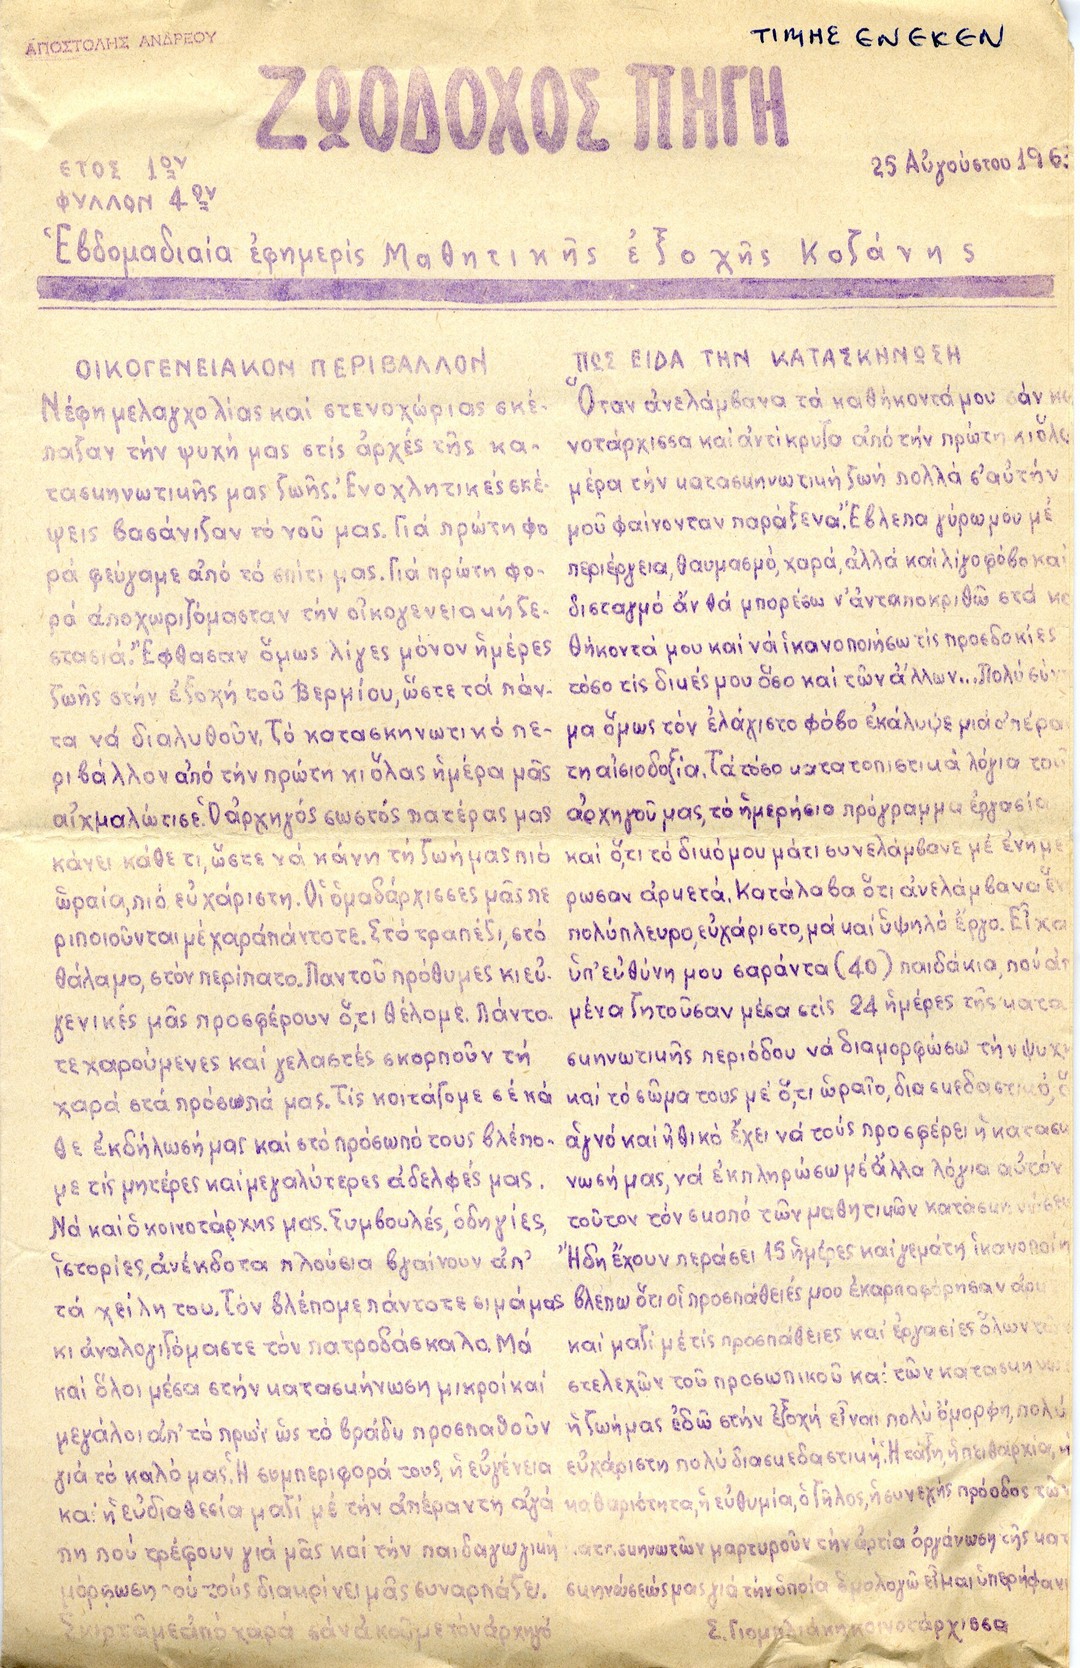 ΑΠΟΣΤΟΛΗΣ ΑΝΔΡΕΟΥ
ΤΙΜΗΣ ΕΝΕΚΕΝ
ΖΩΟΔΟΧΟΣ ΠΗΓΗ
ΕΤΟΣ 1ον
ΦΥΛΛΟΝ 4ον
25 Αὐγούστου 196
Ἑβδομαδιαία ἐφημερίς Μαθητικῆς ἐξοχῆς Κοζάνης
ΟΙΚΟΓΕΝΕΙΑΚΟΝ ΠΕΡΙΒΑΛΛΟΝ
Νέφη μελαγχολίας καί στενοχώριας σκέ-
παζαν τήν ψυχή μας στίς ἀρχές τῆς κα-
τασκηνωτικῆς μας ζωῆς. Ἐνοχλητικές σκέ-
ψεις βασάνιζαν τό νοῦ μας. Γιά πρώτη φο
ρά φεύγαμε ἀπό τό σπίτι μας. Γιά πρώτη φο-
ρά ἀποχωριζόμασταν τήν οἰκογενειακή ζε-
στασιά. Ἔφθασαν ὅμως λίγες μόνον ἡμέρες
ζωῆς στήν ἐξοχή τοῦ Βερμίου, ὥστε τά πάν-
τα νά διαλυθοῦν. Τό κατασκηνωτικό πε-
ριβάλλον ἀπό τήν πρώτη κι ὅλας ἡμέρα μᾶς
αἰχμαλώτισε. Ὁ ἀρχηγός σωστός πατέρας μας
κάνει κάθε τι, ὥστε νά κάνη τή ζωή μας πιό
ὡραία, πιό εὐχάριστη. Οἱ ὁμαδάρχισσες μᾶς πε
ριποιοῦνται μέ χαρά πάντοτε. Στό τραπέζι, στό
θάλαμο, στόν περίπατο. Παντοῦ πρόθυμες κι εὐ-
γενικές μᾶς προσφέρουν ὅ,τι θέλομε. Πάντο-
τε χαρούμενες καί γελαστές σκορποῦν τή
χαρά στά πρόσωπά μας. Τίς κοιτάζομε σέ κά
θε ἐκδήλωσή μας καί στό πρόσωπό τους βλέπο-
με τίς μητέρες καί μεγαλύτερες ἀδελφές μας.
Νά καί ὁ κοινοτάρχης μας. Συμβουλές, ὁδηγίες,
ἱστορίες, ἀνέκδοτα πλούσια βγαίνουν ἀπ'
τά χείλη του. Τόν βλέπομε πάντοτε σιμά μας
κι ἀναλογιζόμαστε τόν πατροδάσκαλο. Μά
καί ὅλοι μέσα στήν κατασκήνωση μικροί καί
μεγάλοι ἀπ' τό πρωΐ ὡς τό βράδυ προσπαθοῦν
γιά τό καλό μας. Ἡ συμπεριφορά τους, ἡ εὐγένεια
καί ἡ εὐδιαθεσία μαζί μέ τήν ἀπέραντη ἀγά
πη πού τρέφουν γιά μᾶς καί τήν παιδαγωγική
μόρφωση πού τούς διακρίνει μᾶς συναρπάζει.
Σκιρτᾶμε ἀπό χαρά σάν ἀκοῦμε τόν ἀρχηγό
ΠΩΣ ΕΙΔΑ ΤΗΝ ΚΑΤΑΣΚΗΝΩΣΗ
Ὅταν ἀνελάμβανα τά καθήκοντά μου σάν κοι
νοτάρχισσα καί ἀντίκρυζα ἀπό τήν πρώτη κι ὅλας
μέρα τήν κατασκηνωτική ζωή πολλά σ' αὐτήν
μοῦ φαίνονταν παράξενα. Ἔβλεπα γύρω μου μέ
περιέργεια, θαυμασμό, χαρά, ἀλλά καί λίγο φόβο καί
δισταγμό ἄν θά μπορέσω ν' ἀνταποκριθῶ στά κα
θήκοντά μου καί νά ἱκανοποιήσω τίς προσδοκίες
τόσο τίς δικές μου ὅσο καί τῶν ἄλλων... Πολύ σύντο
μα ὅμως τόν ἐλάχιστο φόβο ἐκάλυψε μιά ἀπέραν
τη αἰσιοδοξία. Τά τόσο κατατοπιστικά λόγια τοῦ
ἀρχηγοῦ μας, τό ἡμερήσιο πρόγραμμα ἐργασίας
καί ὅ,τι τό δικό μου μάτι συνελάμβανε μέ ἐνημέ
ρωσαν ἀρκετά. Κατάλαβα ὅτι ἀνελάμβανα ἕνα
πολύπλευρο, εὐχάριστο, μά καί ὑψηλό ἔργο. Εἶχα
ὑπ' εὐθύνη μου σαράντα (40) παιδάκια, πού ἀπό
μένα ζητοῦσαν μέσα στίς 24 ἡμέρες τῆς κατα
σκηνωτικῆς περιόδου νά διαμορφώσω τήν ψυχή
καί τό σῶμα τους μέ ὅ,τι ὡραῖο, διασκεδαστικό,
ἁγνό καί ἠθικό ἔχει νά τούς προσφέρει ἡ κατασκή
νωσή μας, νά ἐκπληρώσω μέ ἄλλα λόγια αὐτόν
τοῦτον τόν σκοπό τῶν μαθητικῶν κατασκηνώσεων
Ἤδη ἔχουν περάσει 15 ἡμέρες καί γεμάτη ἱκανοποίηση
βλέπω ὅτι οἱ προσπάθειές μου ἐκαρποφόρησαν
καί μαζί μέ τίς προσπάθειες καί ἐργασίες ὅλων τῶν
στελεχῶν τοῦ προσωπικοῦ καί τῶν κατασκηνωτῶν
ἡ ζωή μας ἐδῶ στήν ἐξοχή εἶναι πολύ ὄμορφη, πολύ
εὐχάριστη πολύ διασκεδαστική. Ἡ τάξη, ἡ πειθαρχία, ἡ
καθαριότητα, ἡ εὐθυμία, ὁ ζῆλος, ἡ συνεχής πρόοδος τῶν
κατασκηνωτῶν μαρτυροῦν τήν ἀρτία ὀργάνωση τῆς κατα
σκηνώσεώς μας γιά τήν ὁποία ὁμολογῶ εἶμαι ὑπερήφανη
Σ. κοινοτάρχισσα